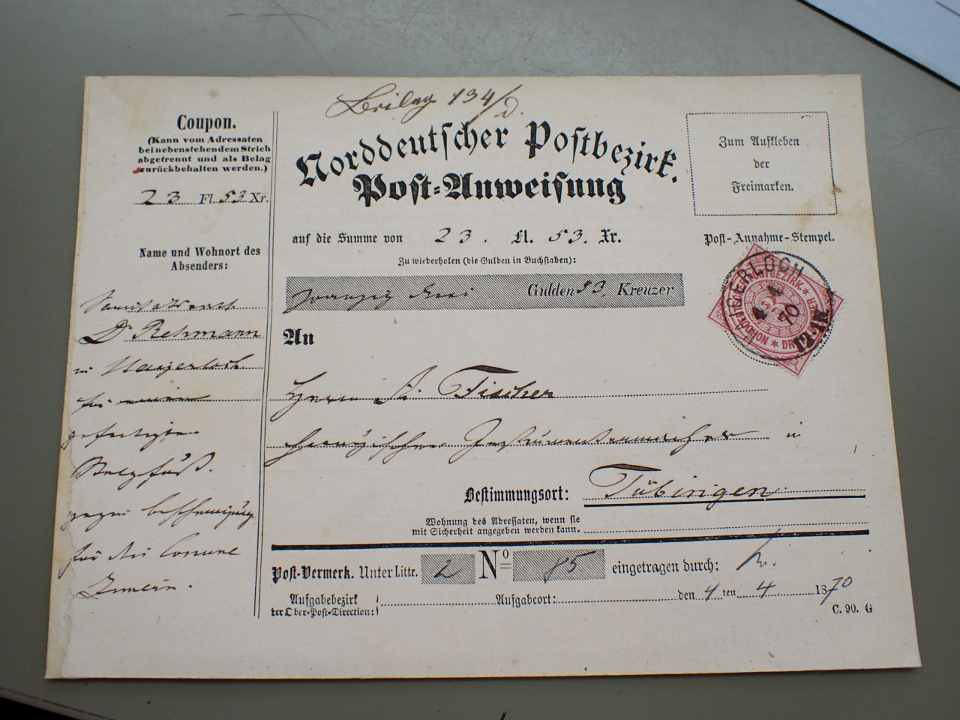 Beilag 134/d.
Coupon.
(Kann vom Adressaten
bei nebenstehendem Strich
abgetrennt und als Belag
zurückbehalten werden.)
23 Fl. 53 Xr.
Name und Wohnort des
Absenders:
Dr Rehmann
in Haigerloch
für einen
gefertigten
Stelzfuß.
gegen Bescheinigung
für die
Norddeutscher Postbezirk.
Post-Anweisung
auf die Summe von 23. Fl. 53. Xr.
Zu wiederholen (die Gulden in Buchstaben):
zwanzig drei Gulden 53. Kreuzer
An
Herrn A. Fischer
chirurgischer Instrumentenmacher in
Bestimmungsort: Tübingen
Wohnung des Adressaten, wenn sie
mit Sicherheit angegeben werden kann.
Post-Vermerk. Unter Littr. 2 No 85 eingetragen durch:
Aufgabebezirk
(der Ober-Post-Direction:)
Aufgabeort: den 4 ten 4 1870
C. 90. G
Zum Aufkleben
der
Freimarken.
Post-Annahme-Stempel.
HAIGERLOCH
4 4
70
12-1N
NORDD. POSTBEZIRK